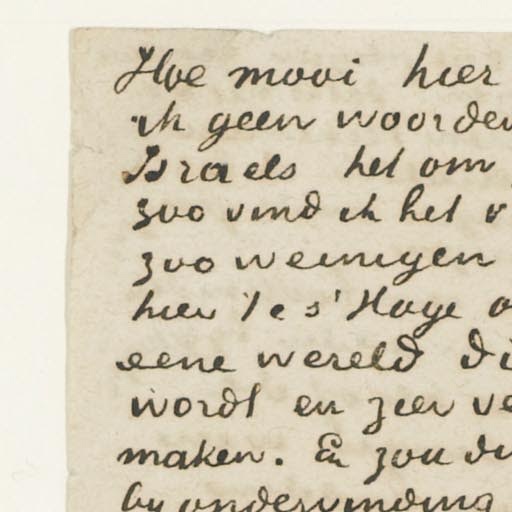 Hoe mooi hier
ik geen woorden
Israels het om
zoo vind ik het
zoo weinigen
hier te s'Hage
eene wereld
wordt en zeer ve
maken. En zou
by ondervinding